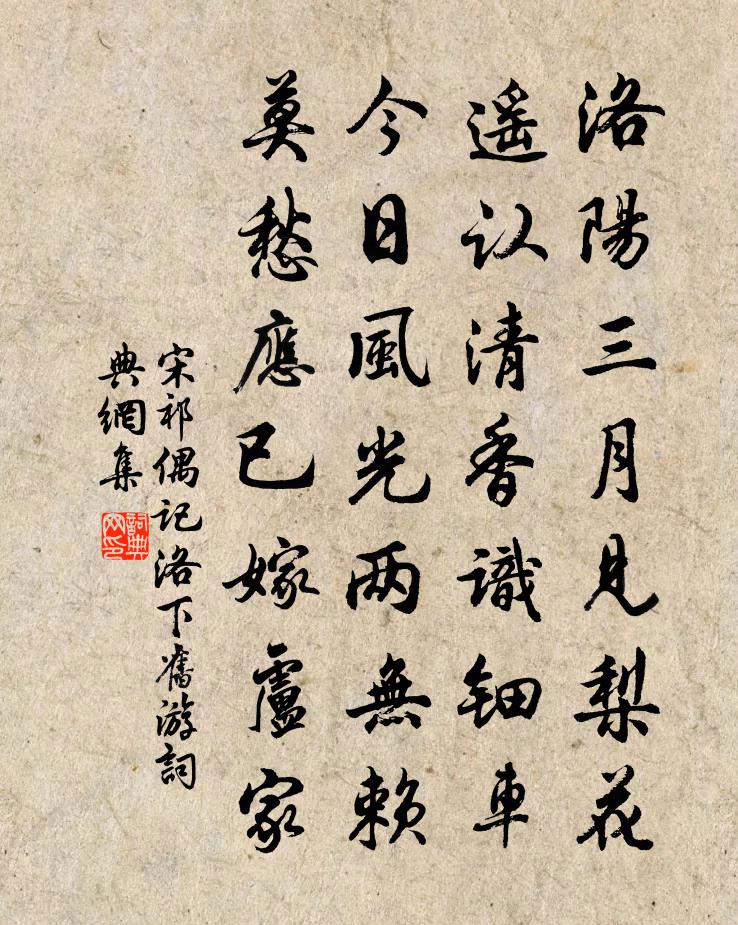 洛陽三月見梨花
遥认清香識钿車
今日風光两無賴
莫愁應已嫁盧家
宋祁偶记洛下舊游詞
典網集
詞典网印